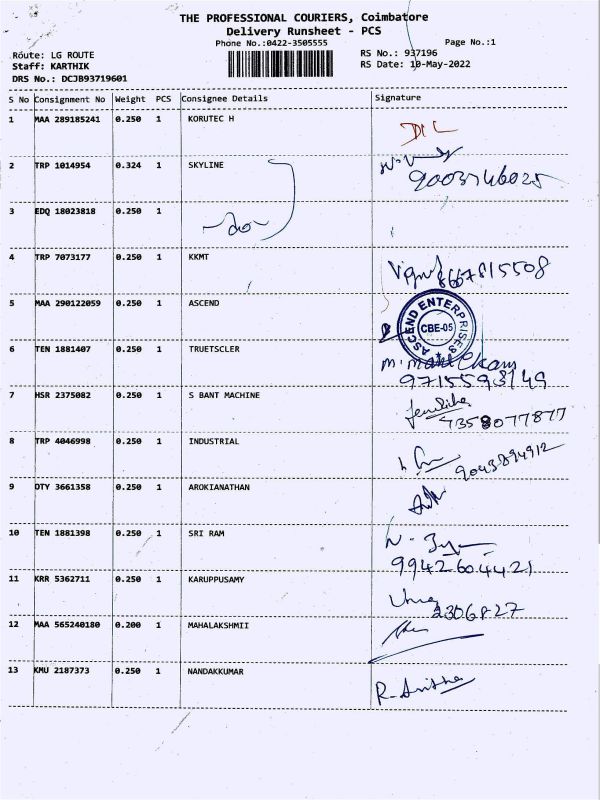 THE PROFESSIONAL COURIERS, Coimbatore
Delivery Runsheet - PCS
Phone No.:0422-3505555 Page No.:1
Route: LG ROUTE RS No.: 937196
Staff: KARTHIK RS Date: 10-May-2022
DRS No.: DCJB93719601
S No Consignment No Weight PCS Consignee Details Signature
1 MAA 289185241 0.250 1 KORUTEC H
2 TRP 1014954 0.324 1 SKYLINE
3 EDQ 18023818 0.250 1 -do-
4 TRP 7073177 0.250 1 KKMT 8667815508
5 MAA 290122059 0.250 1 ASCEND ASCEND ENTERPRISES CBE-05
6 TEN 1881407 0.250 1 TRUETSCLER
9715593149
7 HSR 2375082 0.250 1 S BANT MACHINE
7358077877
8 TRP 4046998 0.250 1 INDUSTRIAL
9043894912
9 OTY 3661358 0.250 1 AROKIANATHAN
10 TEN 1881398 0.250 1 SRI RAM
9942604421
11 KRR 5362711 0.250 1 KARUPPUSAMY
2306827
12 MAA 565240180 0.200 1 MAHALAKSHMII
13 KMU 2187373 0.250 1 NANDAKKUMAR R-Anitha